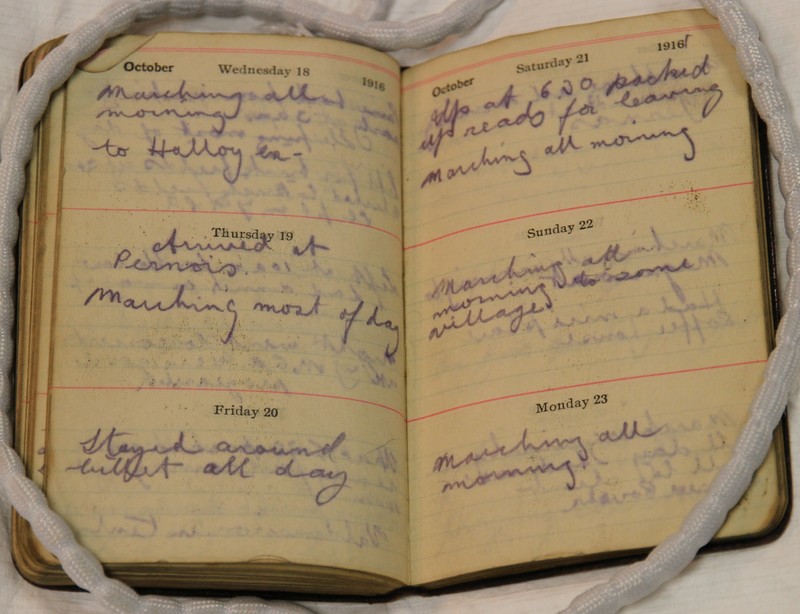 October Wednesday 18 1916
Marching all
morning
to Halloy en-
Thursday 19
Arrived at
Pernois.
Marching most of day
Friday 20
Stayed around
billet all day
October Saturday 21 1916
Up at 6.30 packed
up ready for leaving
Marching all morning
Sunday 22
Marching all
morning to some
village
Monday 23
Marching all
morning.